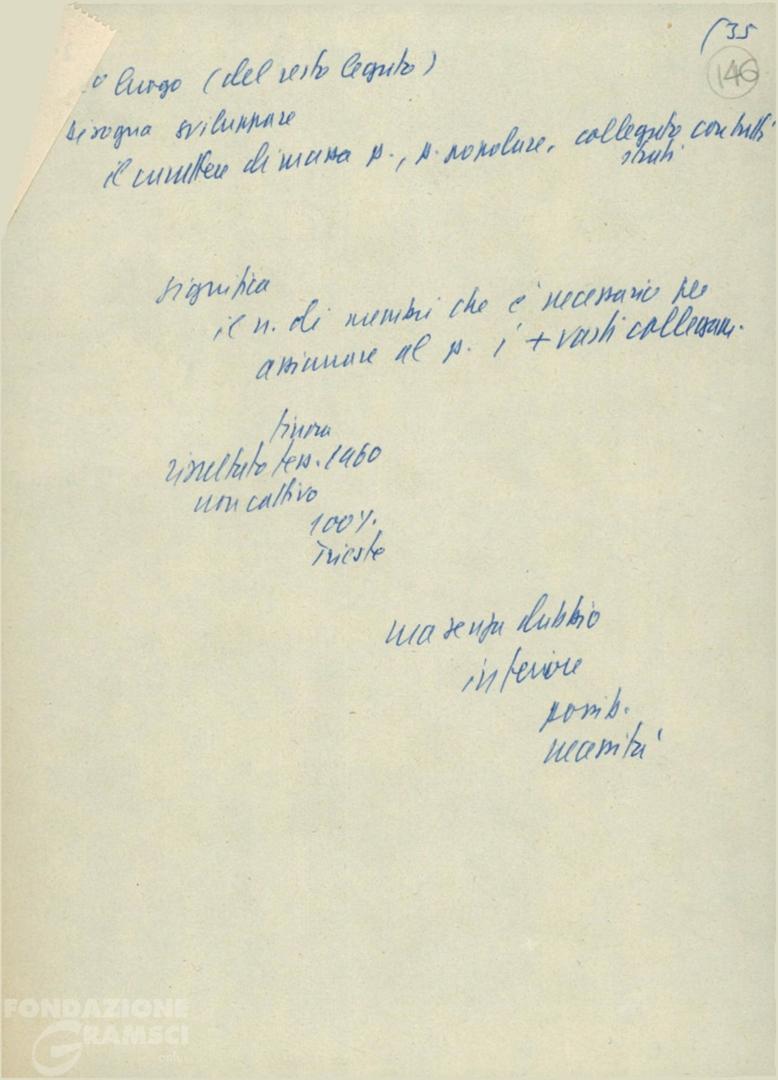 (35
146
º luogo (del resto legato)
bisogna sviluppare
il carattere di massa p., p. popolare, collegato con tutti
strati
significa
il n. di membri che è necessario per
assicurare al p. i + vasti collegam.
finora
risultato tess. 1960
non cattivo
100%
Trieste
ma senza dubbio
inferiore
possib.
necessità
FONDAZIONE
GRAMSCI
onlus